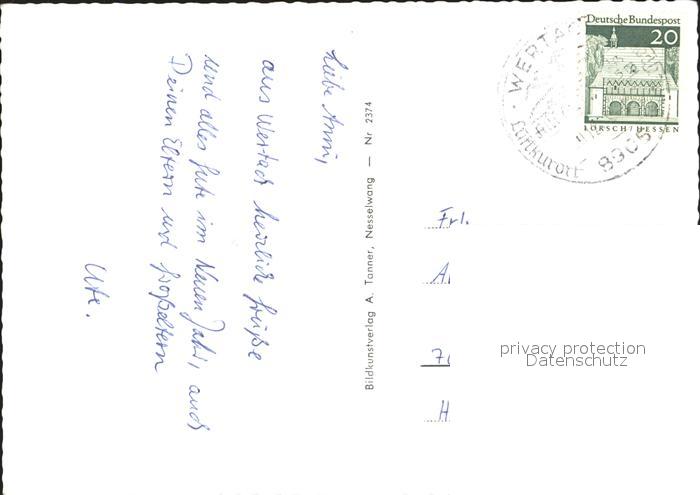 Liebe Anni,
aus Wertach herzliche Grüße
und alles Gute im Neuen Jahr, auch
Deinen Eltern und Großeltern
Ute.
Bildkunstverlag A. Tanner, Nesselwang — Nr 2374
Deutsche Bundespost
20
LORSCH/HESSEN
WERTAC
Luftkurort
Frl.
A.
7
H
privacy protection
Datenschutz